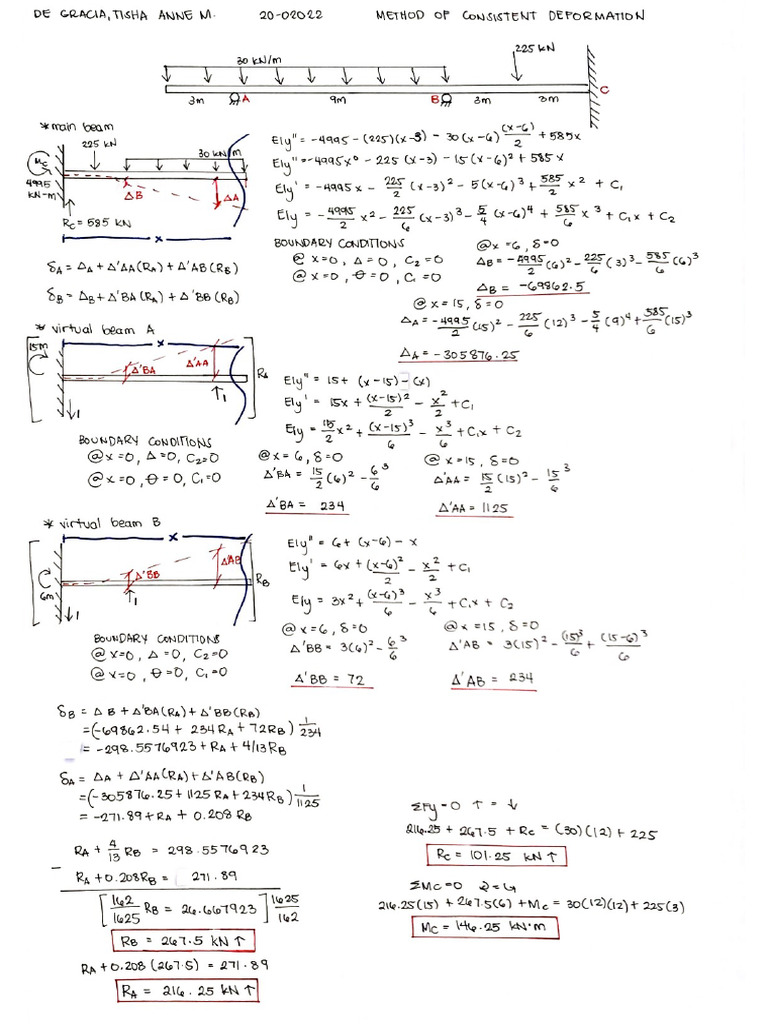 DE GRACIA, TISHA ANNE M. 20-02022 METHOD OF CONSISTENT DEFORMATION
225 kN
30 kN/m
3m A 9m B 3m 3m C
*main beam
225 kN
30 kN/m
Mc
4995
KN-m
ΔB ΔA
Rc = 585 KN
x
δA = ΔA + Δ'AA(RA) + Δ'AB(RB)
δB = ΔB + Δ'BA(RA) + Δ'BB(RB)
EIy'' = -4995 - (225)(x-3) - 30(x-6) (x-6)/2 + 585x
EIy'' = -4995x⁰ - 225(x-3) - 15(x-6)² + 585x
EIy' = -4995x - 225/2 (x-3)² - 5(x-6)³ + 585/2 x² + C₁
EIy = -4995/2 x² - 225/6 (x-3)³ - 5/4 (x-6)⁴ + 585/6 x³ + C₁x + C₂
BOUNDARY CONDITIONS
@ x=0, Δ=0, C₂=0
@ x=0, θ=0, C₁=0
@x=6, δ=0
ΔB = -4995/2 (6)² - 225/6 (3)³ - 585/6 (6)³
ΔB = -69862.5
@ x=15, δ=0
ΔA = -4995/2 (15)² - 225/6 (12)³ - 5/4 (9)⁴ + 585/6 (15)³
ΔA = -305876.25
* virtual beam A
x
15m
Δ'BA Δ'AA RA
1 1
BOUNDARY CONDITIONS
@ x=0, Δ=0, C₂=0
@ x=0, θ=0, C₁=0
EIy'' = 15 + (x-15) - (x)
EIy' = 15x + (x-15)²/2 - x²/2 + C₁
EIy = 15/2 x² + (x-15)³/6 - x³/6 + C₁x + C₂
@ x=6, δ=0
Δ'BA = 15/2 (6)² - 6³/6
Δ'BA = 234
@ x=15, δ=0
Δ'AA = 15/2 (15)² - 15³/6
Δ'AA = 1125
* virtual beam B
x
6m
Δ'BB Δ'AB RB
1 1
BOUNDARY CONDITIONS
@ x=0, Δ=0, C₂=0
@ x=0, θ=0, C₁=0
EIy'' = 6 + (x-6) - x
EIy' = 6x + (x-6)²/2 - x²/2 + C₁
EIy = 3x² + (x-6)³/6 - x³/6 + C₁x + C₂
@ x=6, δ=0
Δ'BB = 3(6)² - 6³/6
Δ'BB = 72
@ x=15, δ=0
Δ'AB = 3(15)² - (15)³/6 + (15-6)³/6
Δ'AB = 234
δB = ΔB + Δ'BA(RA) + Δ'BB(RB)
= (-69862.54 + 234RA + 72RB) 1/234
= -298.5576923 + RA + 4/13 RB
δA = ΔA + Δ'AA(RA) + Δ'AB(RB)
= (-305876.25 + 1125RA + 234RB) 1/1125
= -271.89 + RA + 0.208 RB
RA + 4/13 RB = 298.5576923
- RA + 0.208RB = 271.89
[162/1625 RB = 26.667923] 1625/162
RB = 267.5 KN ↑
RA + 0.208 (267.5) = 271.89
RA = 216.25 KN ↑
ΣFy = 0 ↑ = ↓
216.25 + 267.5 + Rc = (30)(12) + 225
Rc = 101.25 KN ↑
ΣMc = 0 ↻ = ↺
216.25(15) + 267.5(6) + Mc = 30(12)(12) + 225(3)
Mc = 146.25 KN·m